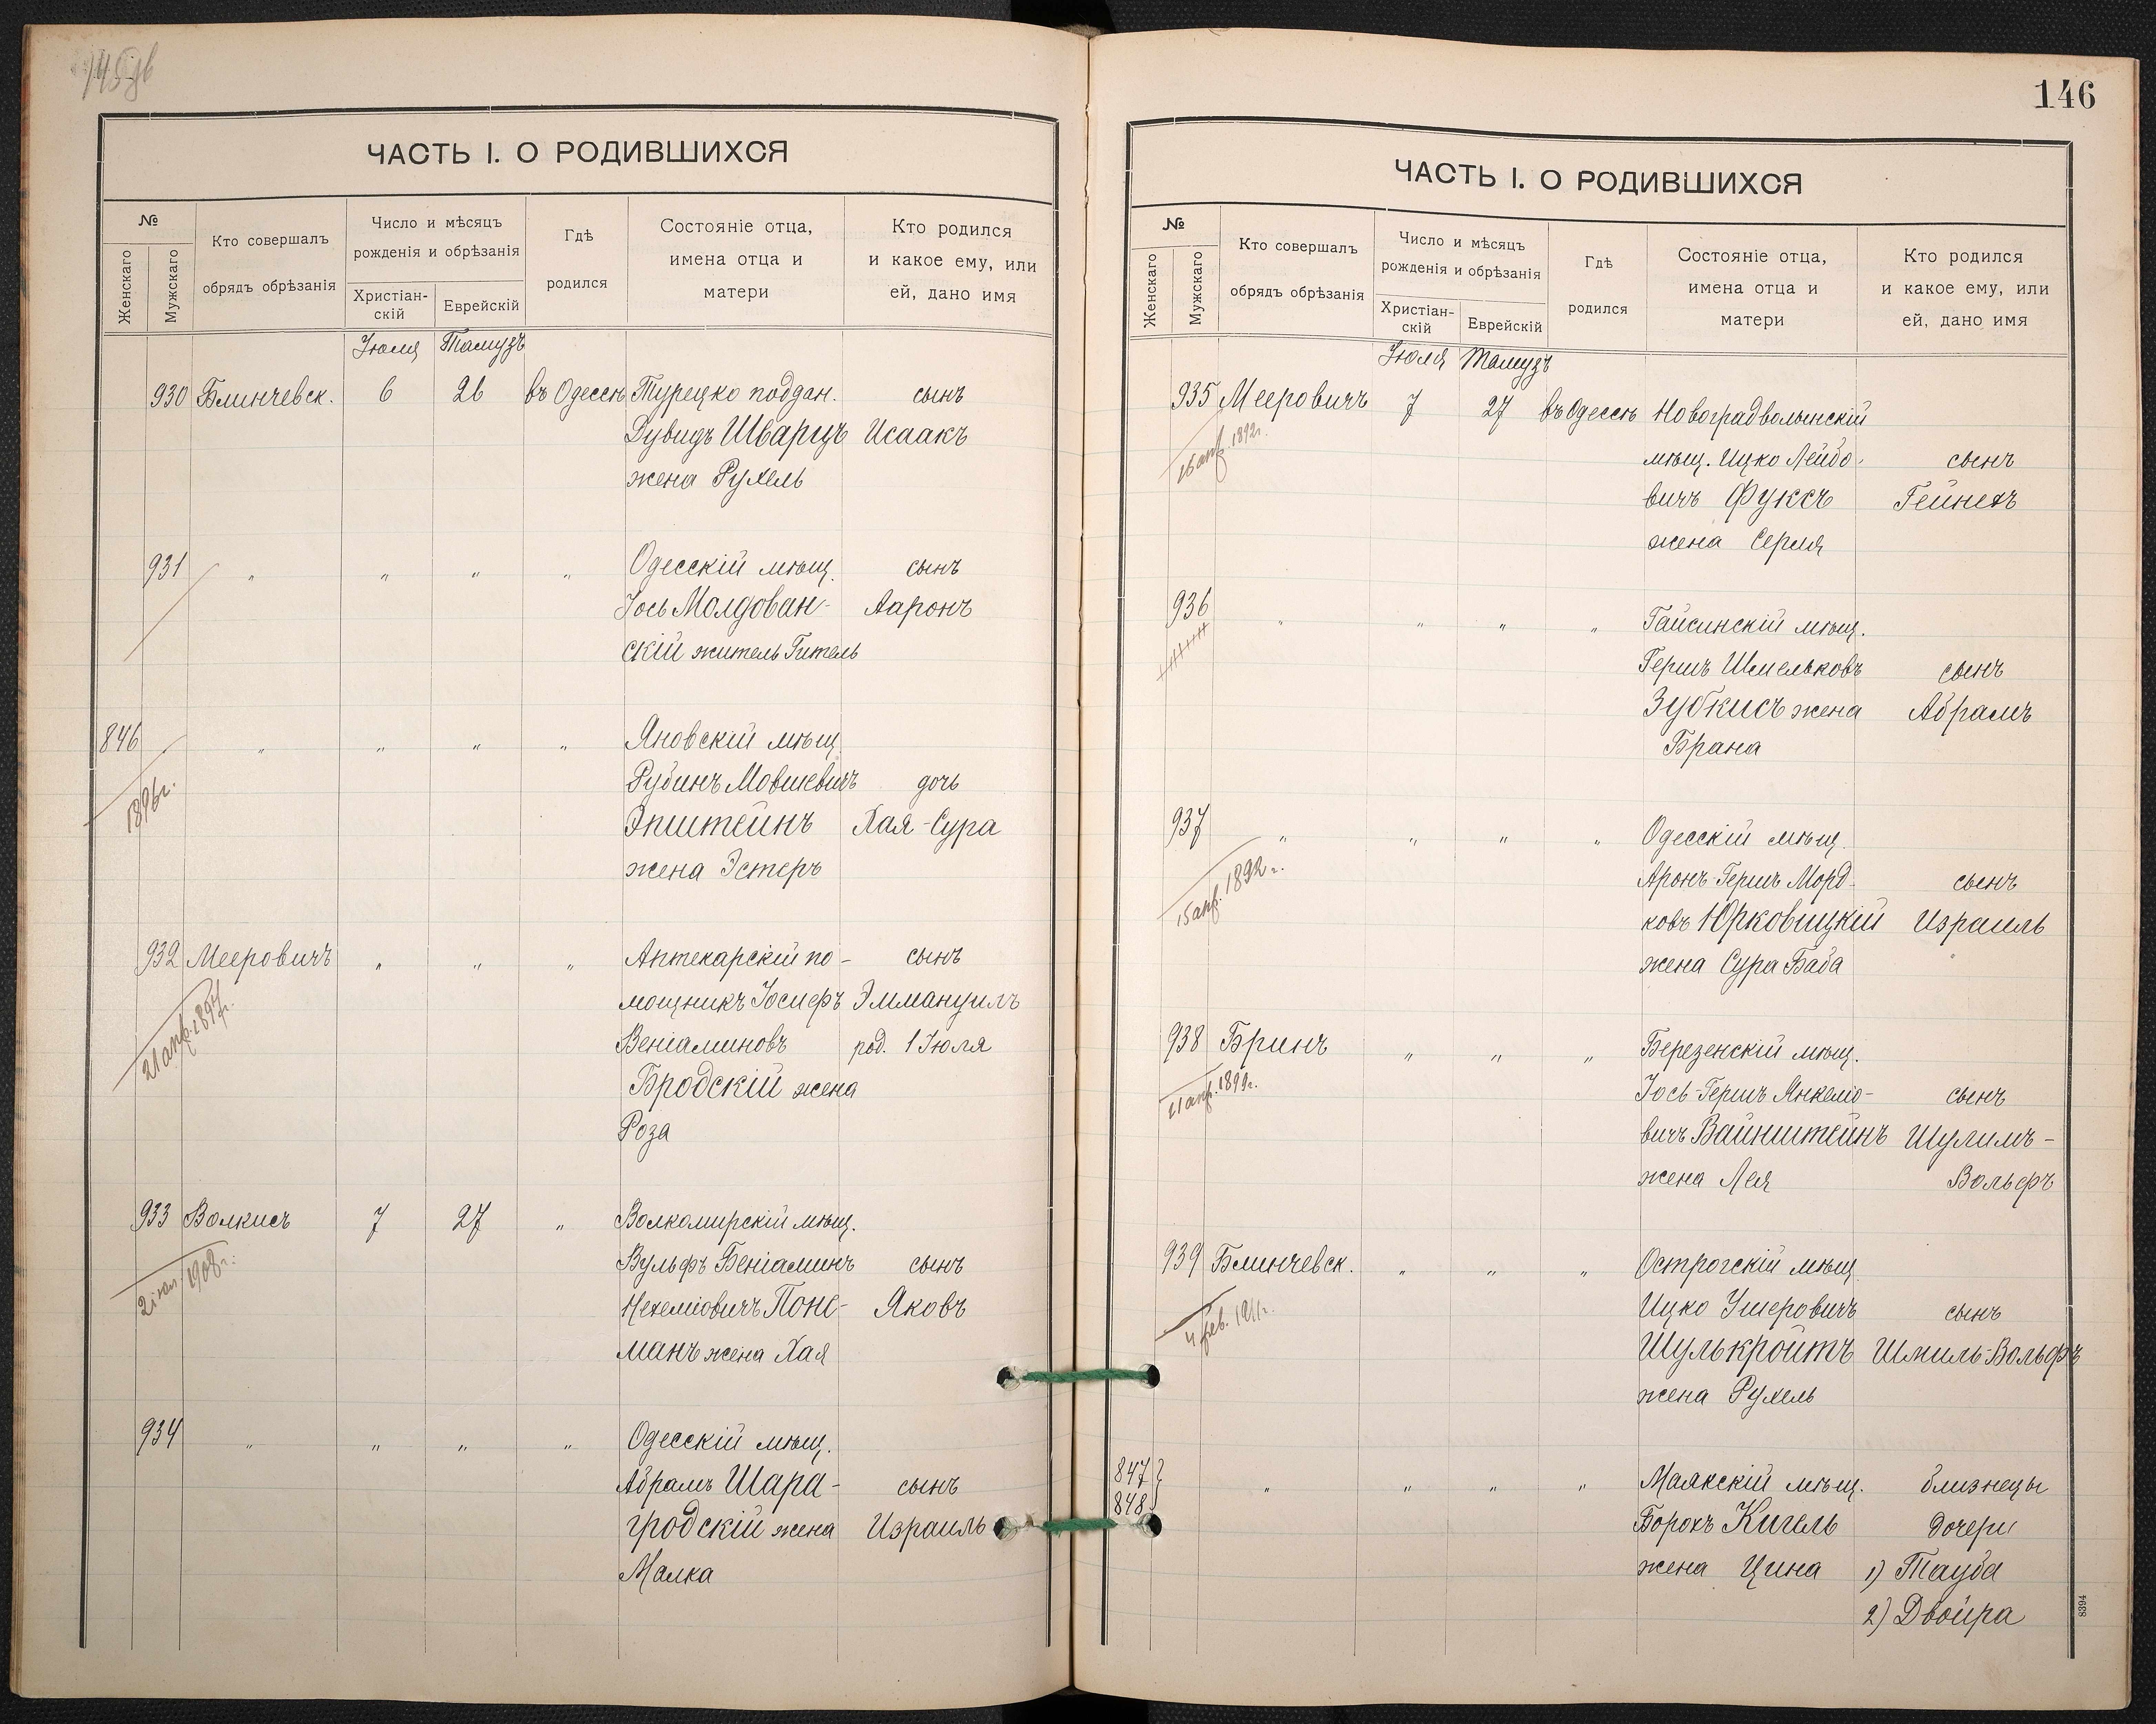 ЧАСТЬ I. О РОДИВШИХСЯ
№
Женскаго
Мужскаго
Кто совершалъ
обрядъ обрѣзанія
Число и мѣсяцъ
рожденія и обрѣзанія
Христіан-
скій
Еврейскій
Гдѣ
родился
Состояніе отца,
имена отца и
матери
Кто родился
и какое ему, или
ей, дано имя
Іюля Тамузъ
930 Блинчевск. 6 26 въ Одессѣ Турецко поддан. сынъ
Дувидъ Шварцъ Исаакъ
жена Рухель
931 " " " " Одесскій мѣщ. сынъ
Іось Молдован- Ааронъ
скій житель Гитель
846 " " " " Яновскій мѣщ.
1896г.
Рубинъ Мовшевичъ дочь
Эпштейнъ Хая-Сура
жена Эстеръ
932 Мееровичъ " " " Аптекарскій по- сынъ
21 апр. 1897г.
мощникъ Іосифъ Эммануилъ
Веніаминовъ род. 1 Іюля
Бродскій жена
Роза
933 Волкисъ 7 27 " Волкомирскій мѣщ.
1908г.
Вульфъ Беніаминъ сынъ
Нехеміовичъ Поне- Яковъ
манъ жена Хая
934 " " " " Одесскій мѣщ.
Абрамъ Шара- сынъ
гродскій жена Израиль
Малка
146
ЧАСТЬ I. О РОДИВШИХСЯ
№
Женскаго
Мужскаго
Кто совершалъ
обрядъ обрѣзанія
Число и мѣсяцъ
рожденія и обрѣзанія
Христіан-
скій
Еврейскій
Гдѣ
родился
Состояніе отца,
имена отца и
матери
Кто родился
и какое ему, или
ей, дано имя
Іюля Тамузъ
935 Мееровичъ 7 27 въ Одессѣ Новоградволынскій
16 апр. 1892г.
мѣщ. Ицко Лейбо- сынъ
вичъ Фуксъ Гейнехъ
жена Серля
936 " " " " Гайсинскій мѣщ.
Гершъ Шмельковъ сынъ
Зубкисъ жена Абрамъ
Брана
937 " " " " Одесскій мѣщ.
15 апр. 1892г.
Аронъ-Гершъ Морд- сынъ
ковъ Юрковицкій Израиль
жена Сура Баба
938 Бринъ " " " Березенскій мѣщ.
21 апр. 1899г.
Іось-Гершъ Янкело- сынъ
вичъ Вайнштейнъ Шулимъ-
жена Лея Вольфъ
939 Блинчевск. " " " Острогскій мѣщ.
4 фев. 1911г.
Ицко Ушеровичъ сынъ
Шулькройтъ Шмиль-Вольфъ
жена Рухель
847 " " " " Маякскій мѣщ. близнецы
848 Борохъ Кигель дочери
жена Цина 1) Тауба
2) Двойра
8394